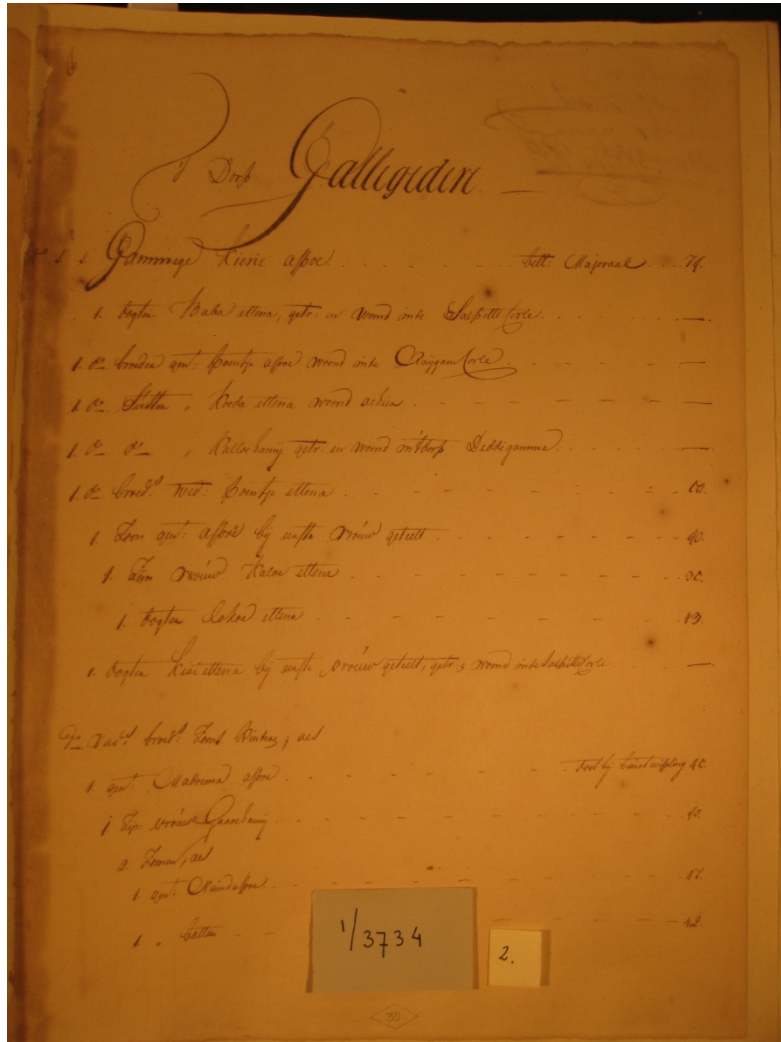 't Dorp Galligedere
1. 1. Gammege Kierie appoe bett: Majoraal 74.
1. dogter Baba ettena, getr: en woond in de Salpitti Corle
1. do broeder gent: Poentje appoe woond in de Raijgam Corle
1. do Suster " Koda ettena woond
1. do do " Kallochamij getr: en woond in 't dorp Deddigamme
1. do broeds wed: Poentje ettena 60.
1. Zoon gent: appoe bij eerste vrouw geteelt 40.
1. Zijn vrouw Kaloe ettena 30.
1. dogter Lokoe ettena 13.
1. dogter Kirie ettena bij eerste vrouw geteelt, getr: woond in de Salpitti Corle
do broeds Zoons kinders, als
1. gent: Madduma appoe 40.
1 Zijn vrouw 40.
2. Zoonen, als
1 gent: Naindeappoe 17.
1 " 12.
1/3734
2.
30